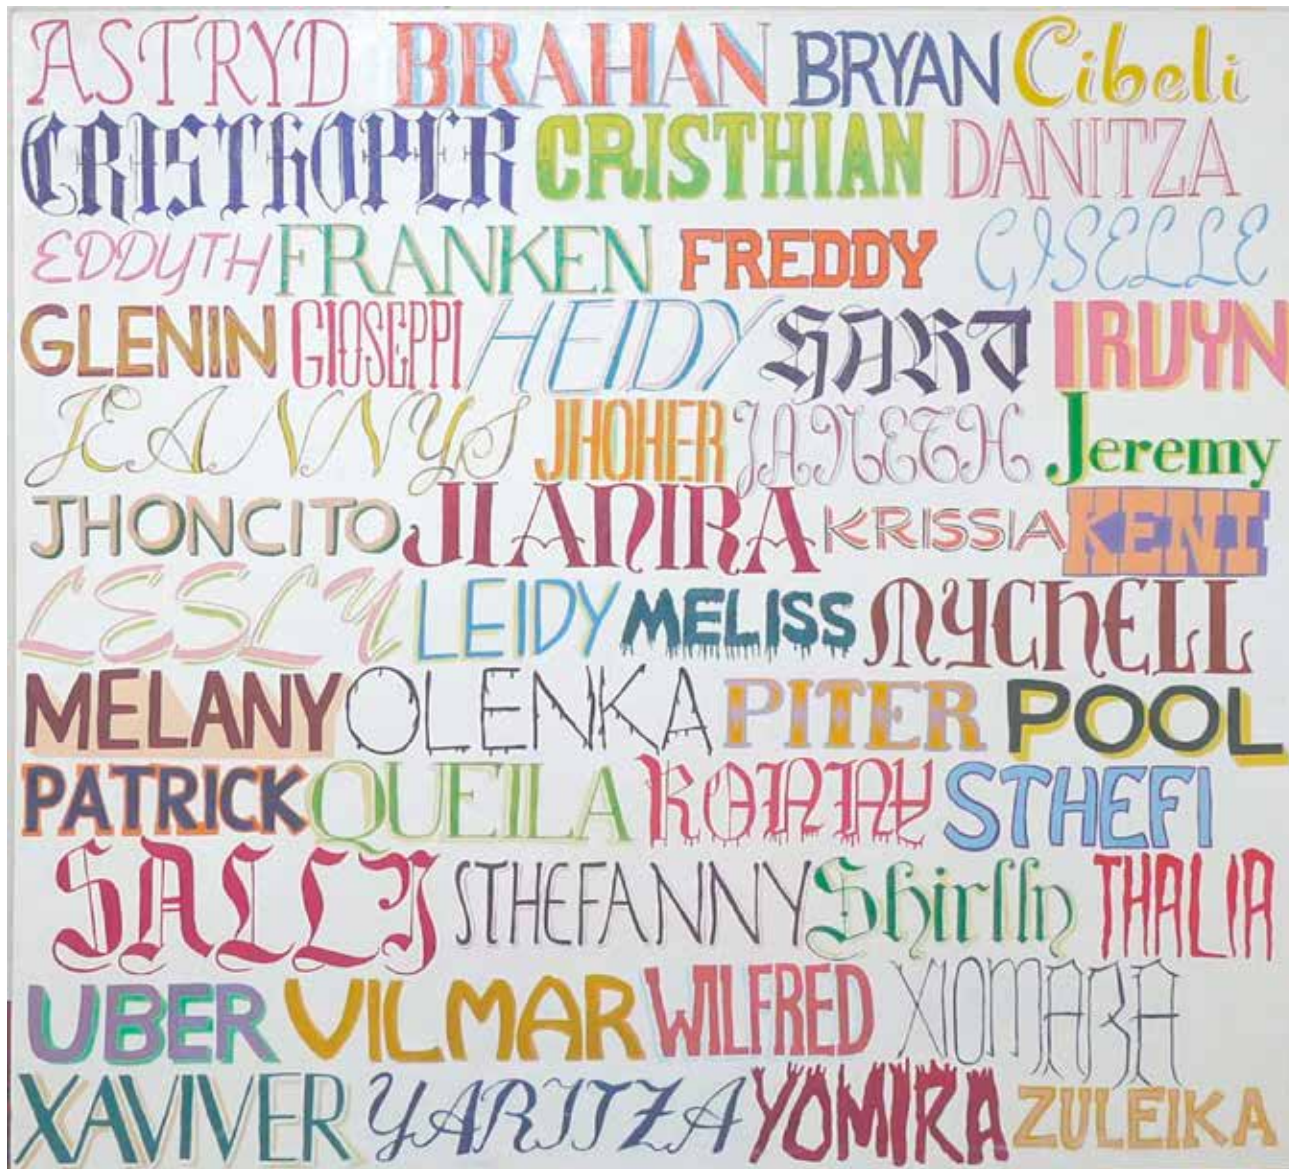 ASTRYD BRAHAN BRYAN Cibeli
CRISThOPER CRISTHIAN DANITZA
EDDYTH FRANKEN FREDDY GISELLE
GLENIN GIOSEPPI HEIDY IRVYN
JEANNYS JHOHER JANETH Jeremy
JHONCITO JIANIRA KRISSIA KENI
LESLY LEIDY MELISS MYChELL
MELANY OLENKA PITER POOL
PATRICK QUEILA RONNY STHEFI
SALLY STHEFANNY Shirlly THALIA
UBER VILMAR WILFRED XIOMARA
XAVIVER YARITZA YOMIRA ZULEIKA